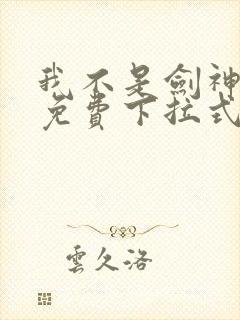 我不是劍神
免費下拉式
雲久洛